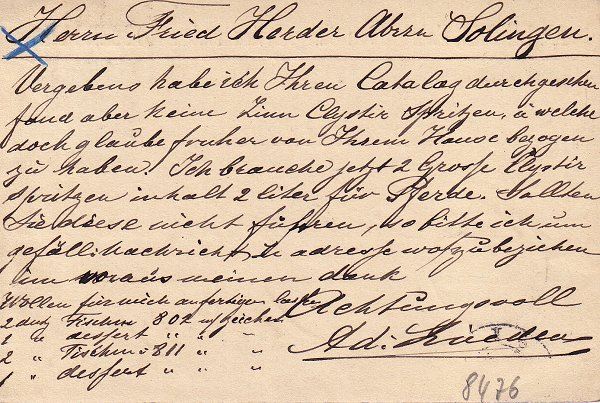 Herrn Fried Herder Abrm Solingen.
Vergebens habe ich Ihren Catalog durchgesehen
fand aber keine Zinn Clystir Spritzen, welche
doch glaube fruher von Ihrem Hause bezogen
zu haben. Ich brauche jetzt 2 Grosse Clystir
spritzen inhalt 2 liter für Pferde. Sollten
Sie diese nicht führen, so bitte ich um
gefäll. nachricht adresse wo zu beziehen
im voraus meinen dank
Achtungsvoll
Wollen für mich anfertigen
2 dutz Tischm 802
1 " dessert " " "
2 " Tischm 811 " "
1 " dessert " " "
Ad.
8476